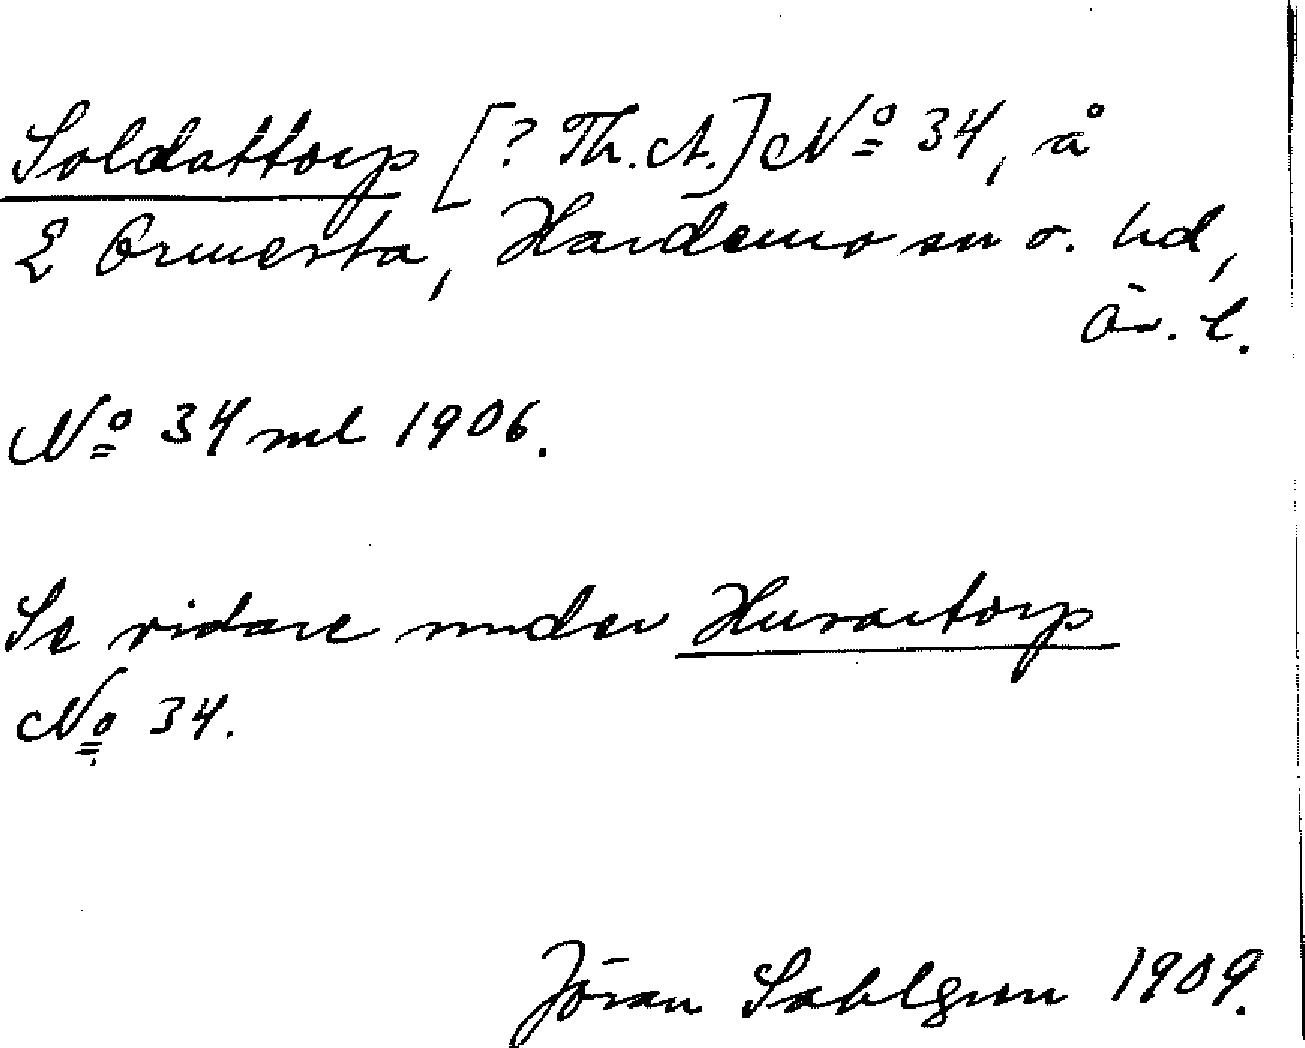 Soldattorp [? Th. A.] No 34, å
2 Ormesta, Hardemo sn o. hd,
Ör. l.
No 34 ml 1906.
Se vidare under Husartorp
No 34.
Jöran Sahlgren 1909.